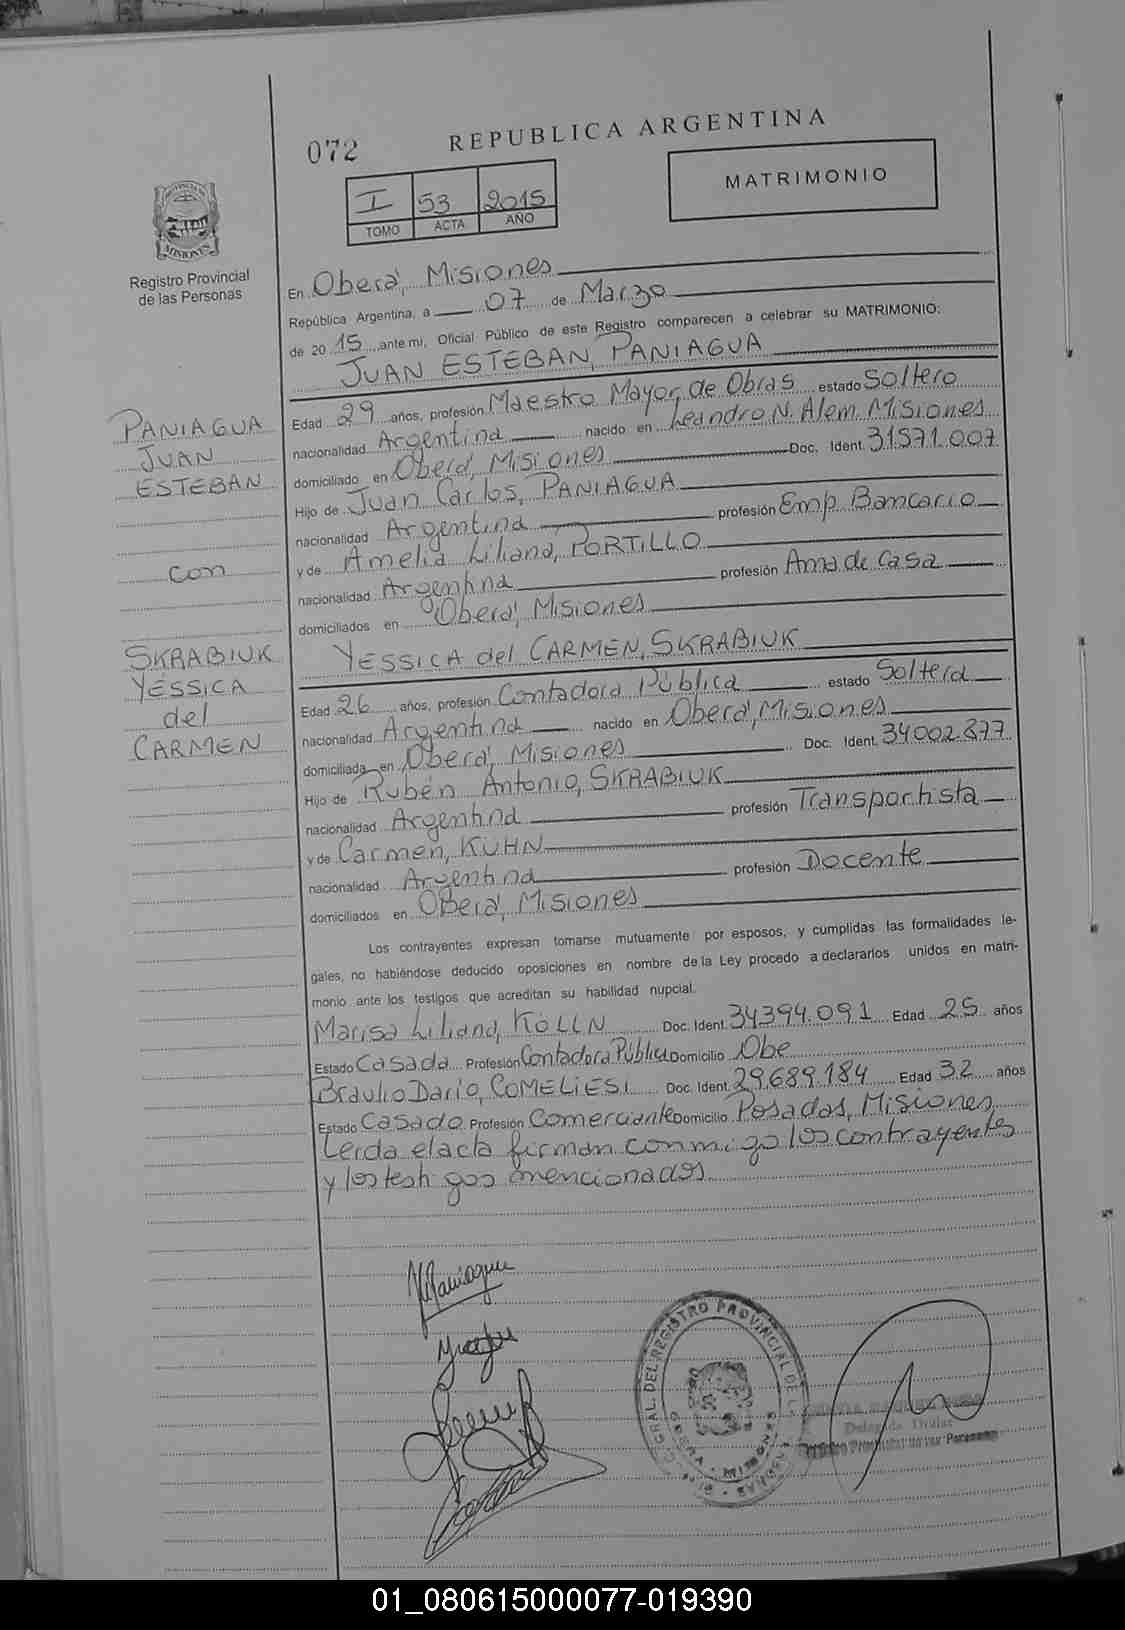 072
REPUBLICA ARGENTINA
I 53 2015
TOMO ACTA AÑO
MATRIMONIO
PROVINCIA DE
MISIONES
Registro Provincial
de las Personas
En Oberá, Misiones
República Argentina, a 07 de Marzo
de 20 15 ante mi, Oficial Público de este Registro comparecen a celebrar su MATRIMONIO:
JUAN ESTEBAN, PANIAGUA
PANIAGUA
JUAN
ESTEBAN
con
SKRABIUK
YESSICA
del
CARMEN
Edad 29 años, profesión Maestro Mayor de Obras estado Soltero
nacionalidad Argentina nacido en Leandro N. Alem. Misiones
domiciliado en Oberá, Misiones Doc. Ident. 31571.007
Hijo de Juan Carlos, PANIAGUA
nacionalidad Argentina profesión Emp. Bancario
y de Amelia Liliana, PORTILLO
nacionalidad Argentina profesión Ama de Casa
domiciliados en Oberá, Misiones
YESSICA del CARMEN, SKRABIUK
Edad 26 años, profesión Contadora Pública estado Soltera
nacionalidad Argentina nacido en Oberá, Misiones
domiciliada en Oberá, Misiones Doc. Ident. 34002.877
Hijo de Rubén Antonio, SKRABIUK
nacionalidad Argentina profesión Transportista
y de Carmen, KUHN
nacionalidad Argentina profesión Docente
domiciliados en Oberá, Misiones
Los contrayentes expresan tomarse mutuamente por esposos, y cumplidas las formalidades le-
gales, no habiéndose deducido oposiciones en nombre de la Ley procedo a declararlos unidos en matri-
monio ante los testigos que acreditan su habilidad nupcial.
Marisa Liliana, KOLLN Doc. Ident. 34394.091 Edad 25 años
Estado Casada Profesión Contadora Pública Domicilio Obe
Braulio Dario, COMELIESI Doc. Ident. 29.689.184 Edad 32 años
Estado Casado Profesión Comerciante Domicilio Posadas, Misiones
Leida el acta firman conmigo los contrayentes
y los testigos mencionados
GRAL. DEL REGISTRO PROVINCIAL DE
Delegada Titular
Registro Provincial de las Personas
01_080615000077-019390